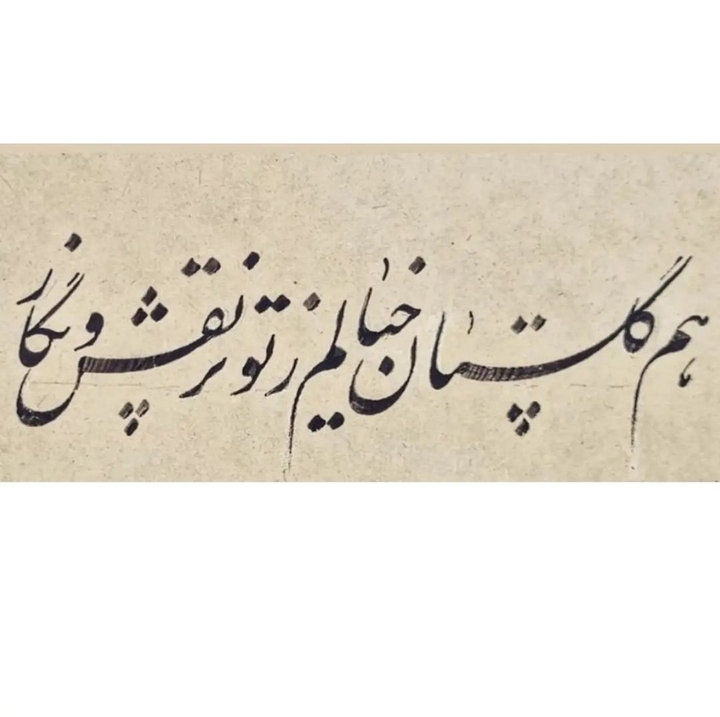 هم گلستان خیالم ز تو پر نقش و نگار